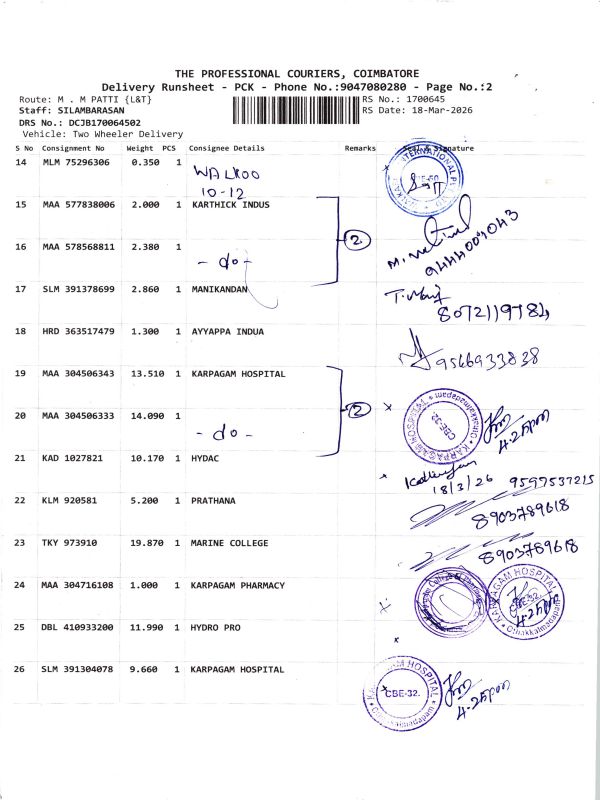 THE PROFESSIONAL COURIERS, COIMBATORE
Delivery Runsheet - PCK - Phone No.:9047080280 - Page No.:2
Route: M . M PATTI {L&T}
RS No.: 1700645
Staff: SILAMBARASAN
RS Date: 18-Mar-2026
DRS No.: DCJB170064502
Vehicle: Two Wheeler Delivery
S No Consignment No Weight PCS Consignee Details Remarks & Signature
14 MLM 75296306 0.350 1
WALKOO
10-12
15 MAA 577838006 2.000 1 KARTHICK INDUS
2
16 MAA 578568811 2.380 1
- do -
9444009043
17 SLM 391378699 2.860 1 MANIKANDAN
8072119784
18 HRD 363517479 1.300 1 AYYAPPA INDUA
9566933838
19 MAA 304506343 13.510 1 KARPAGAM HOSPITAL
2
20 MAA 304506333 14.090 1
- do -
KARPAGAM HOSPITAL
CBE-32.
4.25pm
21 KAD 1027821 10.170 1 HYDAC
18/3/26 9597537215
22 KLM 920581 5.200 1 PRATHANA
8903789618
23 TKY 973910 19.870 1 MARINE COLLEGE
8903789618
24 MAA 304716108 1.000 1 KARPAGAM PHARMACY
KARPAGAM HOSPITAL
CBE-32.
4.25pm
25 DBL 410933200 11.990 1 HYDRO PRO
26 SLM 391304078 9.660 1 KARPAGAM HOSPITAL
HOSPITAL
CBE-32.
4.25pm